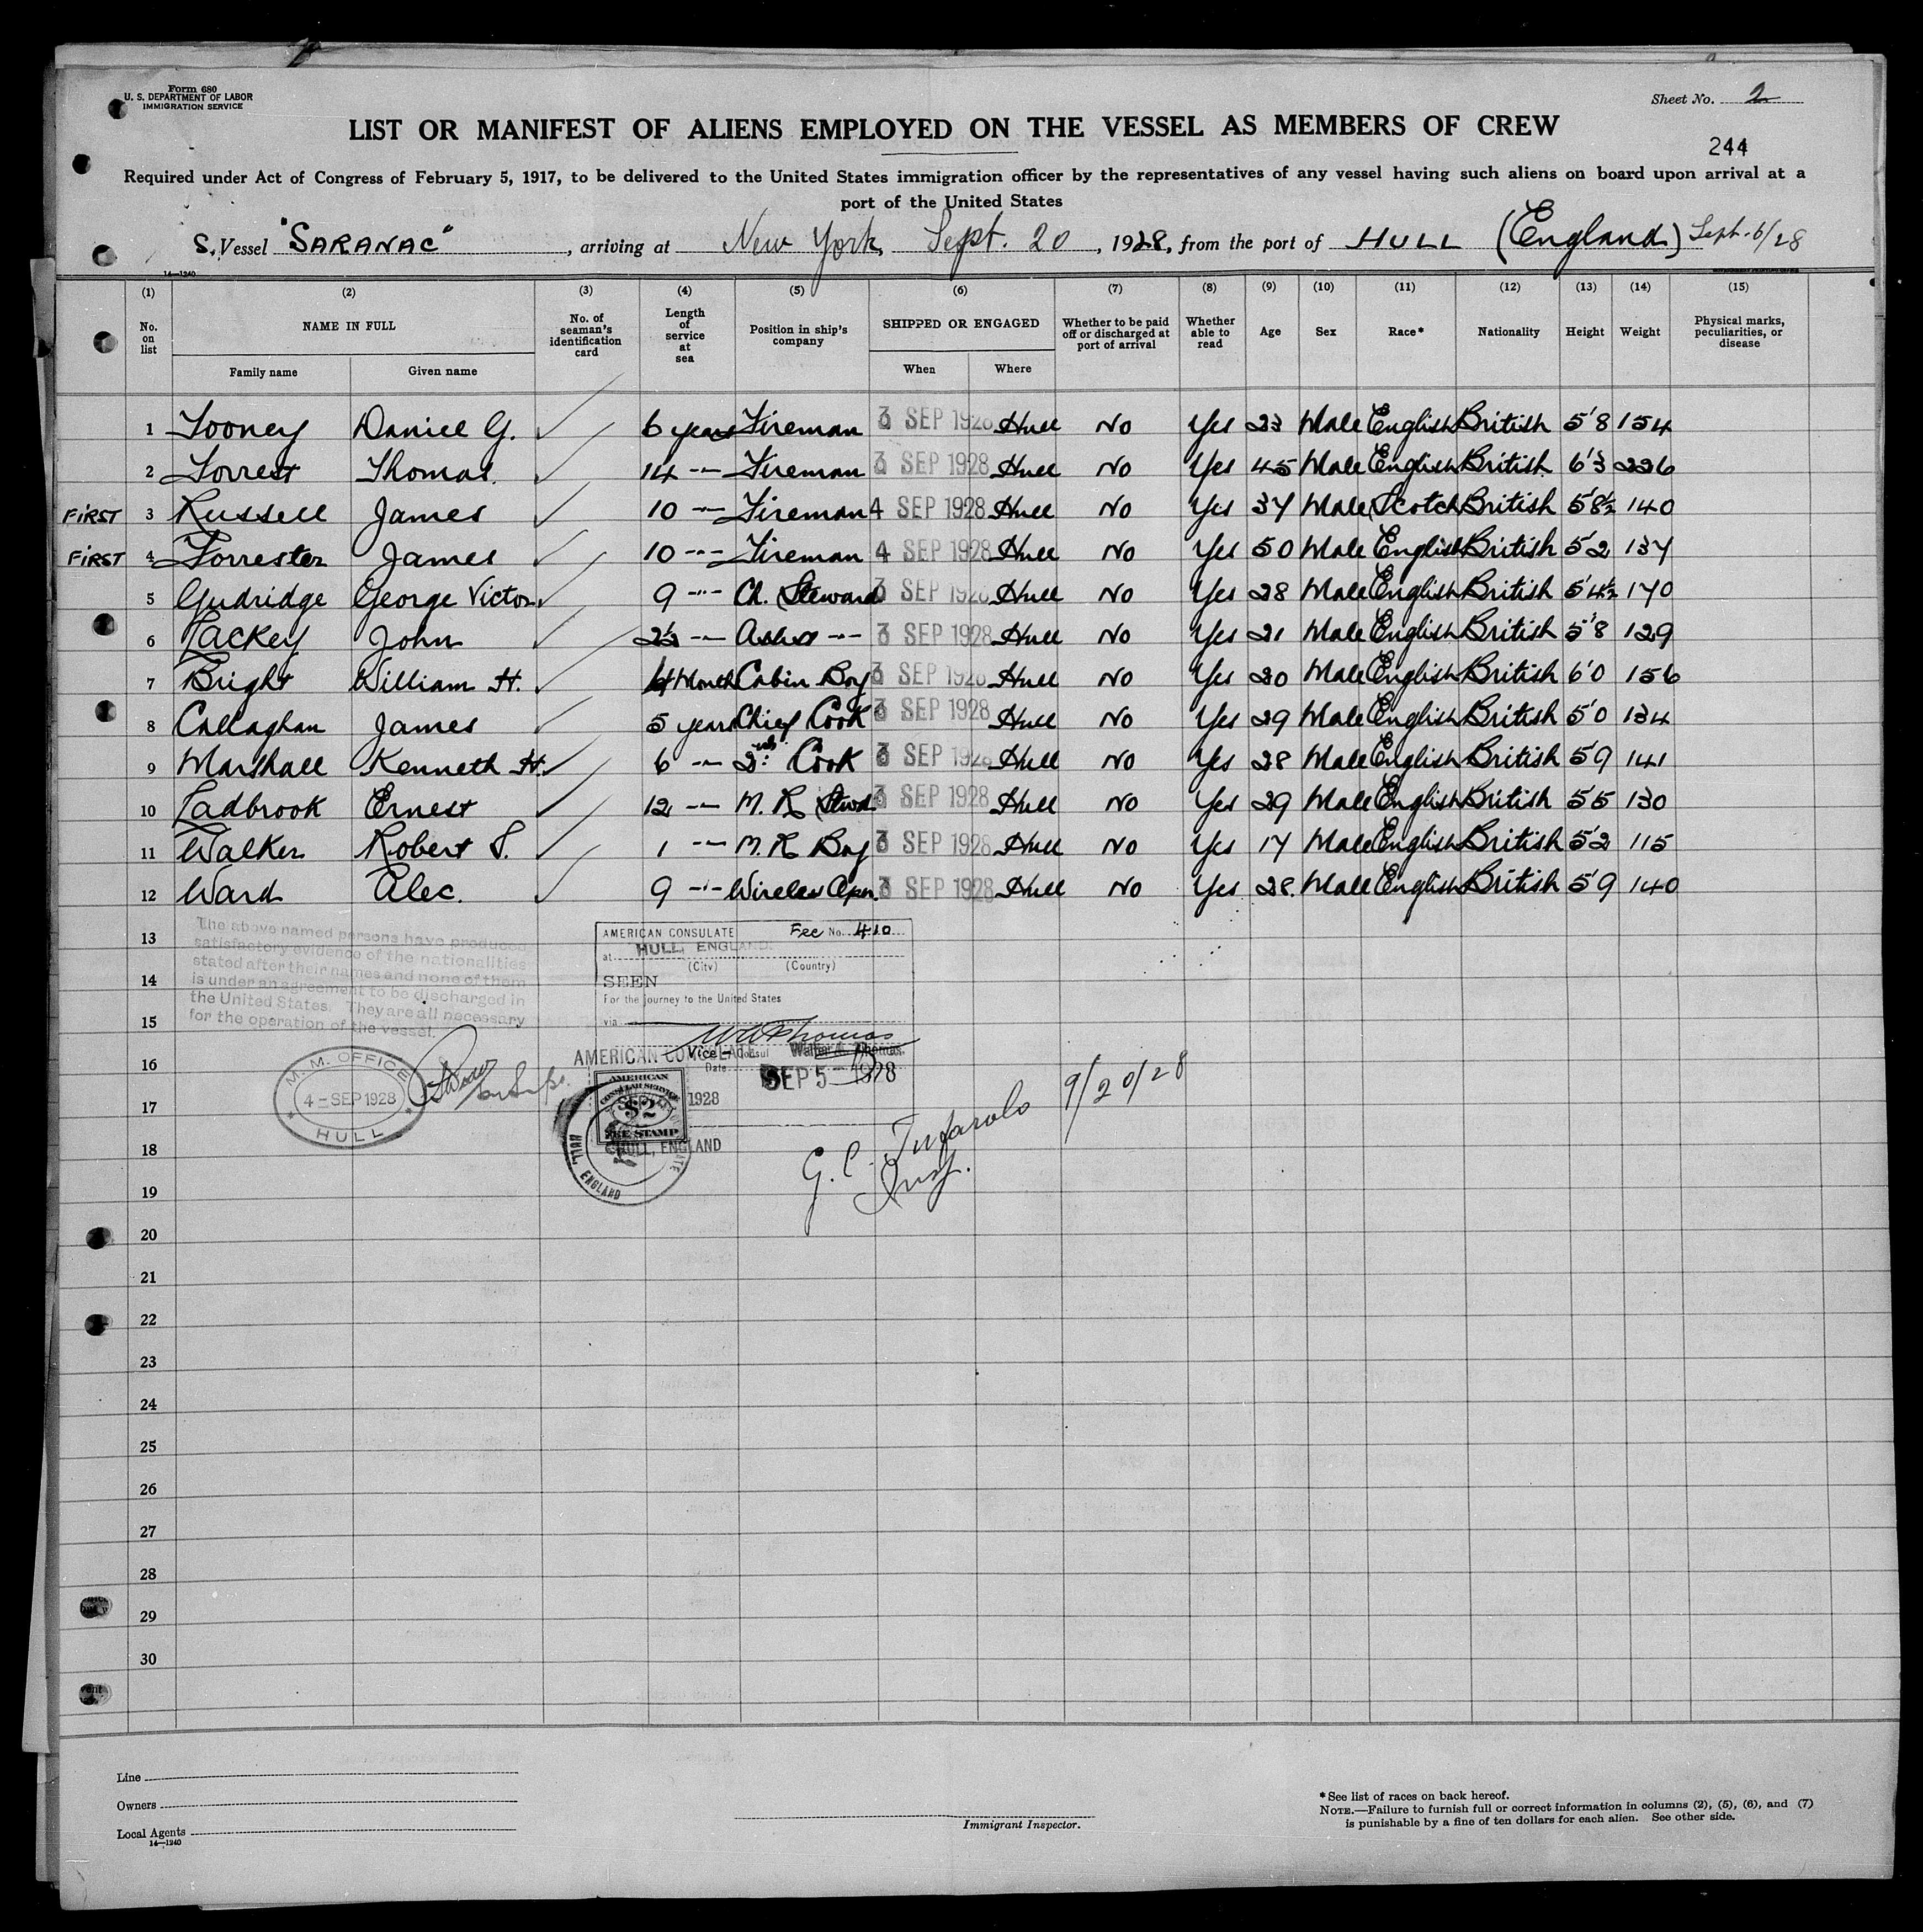 Form 680
U. S. DEPARTMENT OF LABOR
IMMIGRATION SERVICE
Sheet No. 2
LIST OR MANIFEST OF ALIENS EMPLOYED ON THE VESSEL AS MEMBERS OF CREW
244
Required under Act of Congress of February 5, 1917, to be delivered to the United States immigration officer by the representatives of any vessel having such aliens on board upon arrival at a
port of the United States
S. Vessel "SARANAC", arriving at New York, Sept. 20, 1928, from the port of HULL (England) Sept. 6/28
14—1240
(1) (2) (3) (4) (5) (6) (7) (8) (9) (10) (11) (12) (13) (14) (15)
No. on list NAME IN FULL No. of seaman's identification card Length of service at sea Position in ship's company SHIPPED OR ENGAGED Whether to be paid off or discharged at port of arrival Whether able to read Age Sex Race* Nationality Height Weight Physical marks, peculiarities, or disease
Family name Given name When Where
1 Tooney Daniel G. 6 years Fireman 3 SEP 1928 Hull No Yes 23 Male English British 5'8 154
2 Forrest Thomas. 14 -"- Fireman 3 SEP 1928 Hull No Yes 45 Male English British 6'3 226
FIRST 3 Russell James 10 -"- Fireman 4 SEP 1928 Hull No Yes 37 Male Scotch British 5'8½ 140
FIRST 4 Forrester James 10 -"- Fireman 4 SEP 1928 Hull No Yes 50 Male English British 5'2 137
5 Gudridge George Victor 9 -"- Ch. Steward 3 SEP 1928 Hull No Yes 28 Male English British 5'4½ 170
6 Lackey John 2½ -"- Asst -"- 3 SEP 1928 Hull No Yes 21 Male English British 5'8 129
7 Bright William H. Month Cabin Boy 3 SEP 1928 Hull No Yes 20 Male English British 6'0 156
8 Callaghan James 5 years Chief Cook 3 SEP 1928 Hull No Yes 29 Male English British 5'0 134
9 Marshall Kenneth H. 6 -"- 2nd Cook 3 SEP 1928 Hull No Yes 28 Male English British 5'9 141
10 Ladbrook Ernest 12 -"- M. R Stwd 3 SEP 1928 Hull No Yes 29 Male English British 5'5 130
11 Walker Robert S. 1 -"- M. R Boy 3 SEP 1928 Hull No Yes 17 Male English British 5'2 115
12 Ward Alec. 9 -"- Wireless Opr. 3 SEP 1928 Hull No Yes 28. Male English British 5'9 140
The above named persons have produced
satisfactory evidence of the nationalities
stated after their names and none of them
is under an agreement to be discharged in
the United States. They are all necessary
for the operation of the vessel.
M. M. OFFICE
4 - SEP 1928
HULL
AMERICAN CONSULATE Fee No. 410
at HULL, ENGLAND
(City) (Country)
SEEN
For the journey to the United States
via
W A Thomas
AMERICAN CONSULATE
Vice - Consul Walter A. Thomas.
Date SEP 5 - 1928
AMERICAN
CONSULAR SERVICE
$2
FEE STAMP
1928
HULL, ENGLAND
HULL, ENGLAND
G. C. Tufarolo 9/20/28
Insp.
13
14
15
16
17
18
19
20
21
22
23
24
25
26
27
28
29
30
Line
Owners
Local Agents
14—1240
Immigrant Inspector.
*See list of races on back hereof.
NOTE.—Failure to furnish full or correct information in columns (2), (5), (6), and (7)
is punishable by a fine of ten dollars for each alien. See other side.